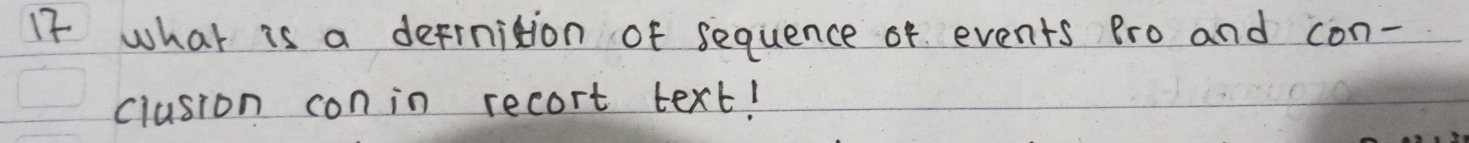 17 what is a definition of sequence of events Pro and con-
clusion con in recort text!